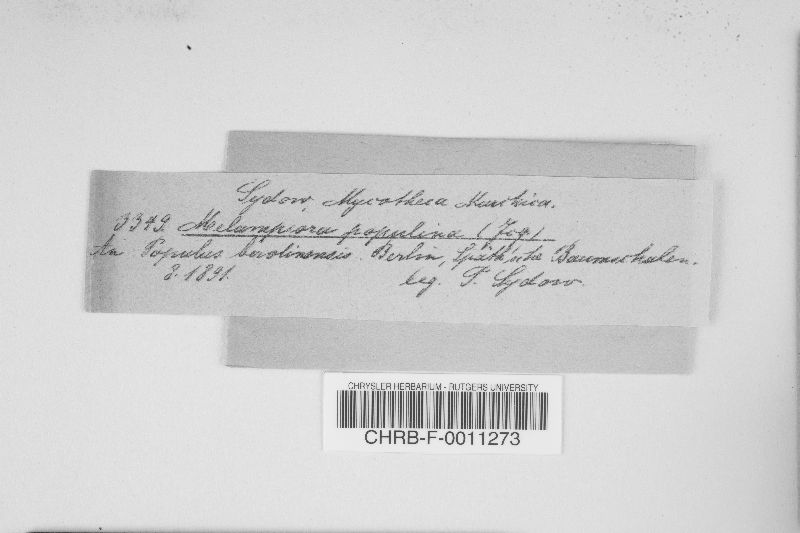 Sydow, Mycotheca Marchica.
3349. Melampsora populina (Jcq)
An Populus berolinensis. Berlin, Späth'sche Baumschulen.
8. 1891. leg. P. Sydow.
CHRYSLER HERBARIUM - RUTGERS UNIVERSITY
CHRB-F-0011273